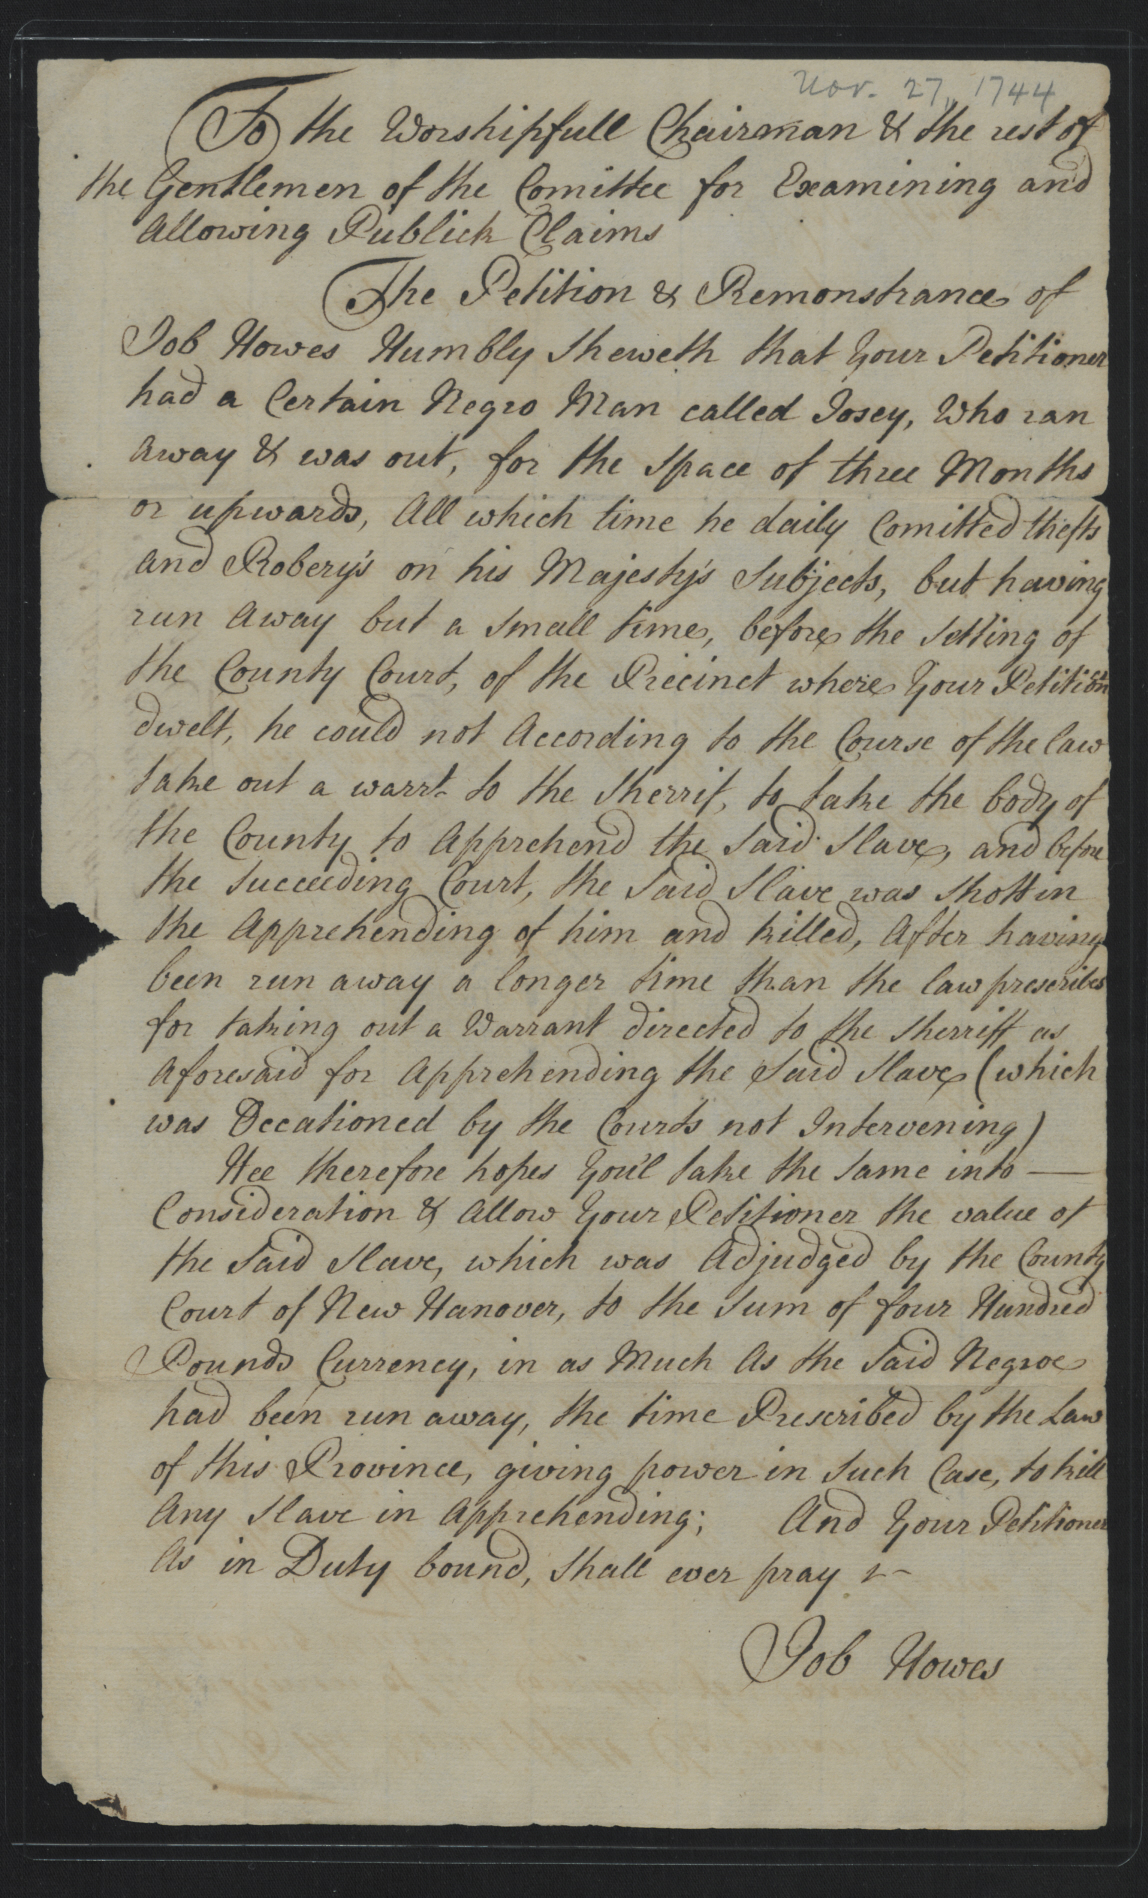 Nov. 27, 1744
To the Worshipfull Chairman & the rest of
the Gentlemen of the Comittee for Examining and
Allowing Publick Claims
The Petition & Remonstrance of
Job Howes Humbly Sheweth that Your Petitioner
had a Certain Negro Man called Josey, Who ran
Away & was out, for the Space of three Months
or upwards, All which time he daily Comitted thefts
And Robery's on his Majesty's Subjects, but having
run Away but a Small time, before the Setting of
the County Court, of the Precinct where Your Petitionr
dwelt, he could not According to the Course of the law
take out a warrt to the Sherrif, to take the body of
the County to Apprehend the Said Slave, and before
the Succeeding Court, the Said Slave was Shott in
the Apprehending of him and killed, After having
been run away a longer time than the law prescribes
for taking out a Warrant directed to the Sherriff as
Aforesaid for Apprehending the Said Slave (which
was Occationed by the Courts not Intervening)
Hee therefore hopes You'l take the Same into —
Consideration & Allow Your Petitioner the value of
the Said Slave, which was Adjudged by the County
Court of New Hanover, to the Sum of four Hundred
Pounds Currency, in as Much As the Said Negroe
had been run away, the time Prescribed by the Law
of this Province, giving power in Such Case, to kill
Any Slave in Apprehending; And Your Petitioner
As in Duty bound, Shall ever pray &-
Job Howes